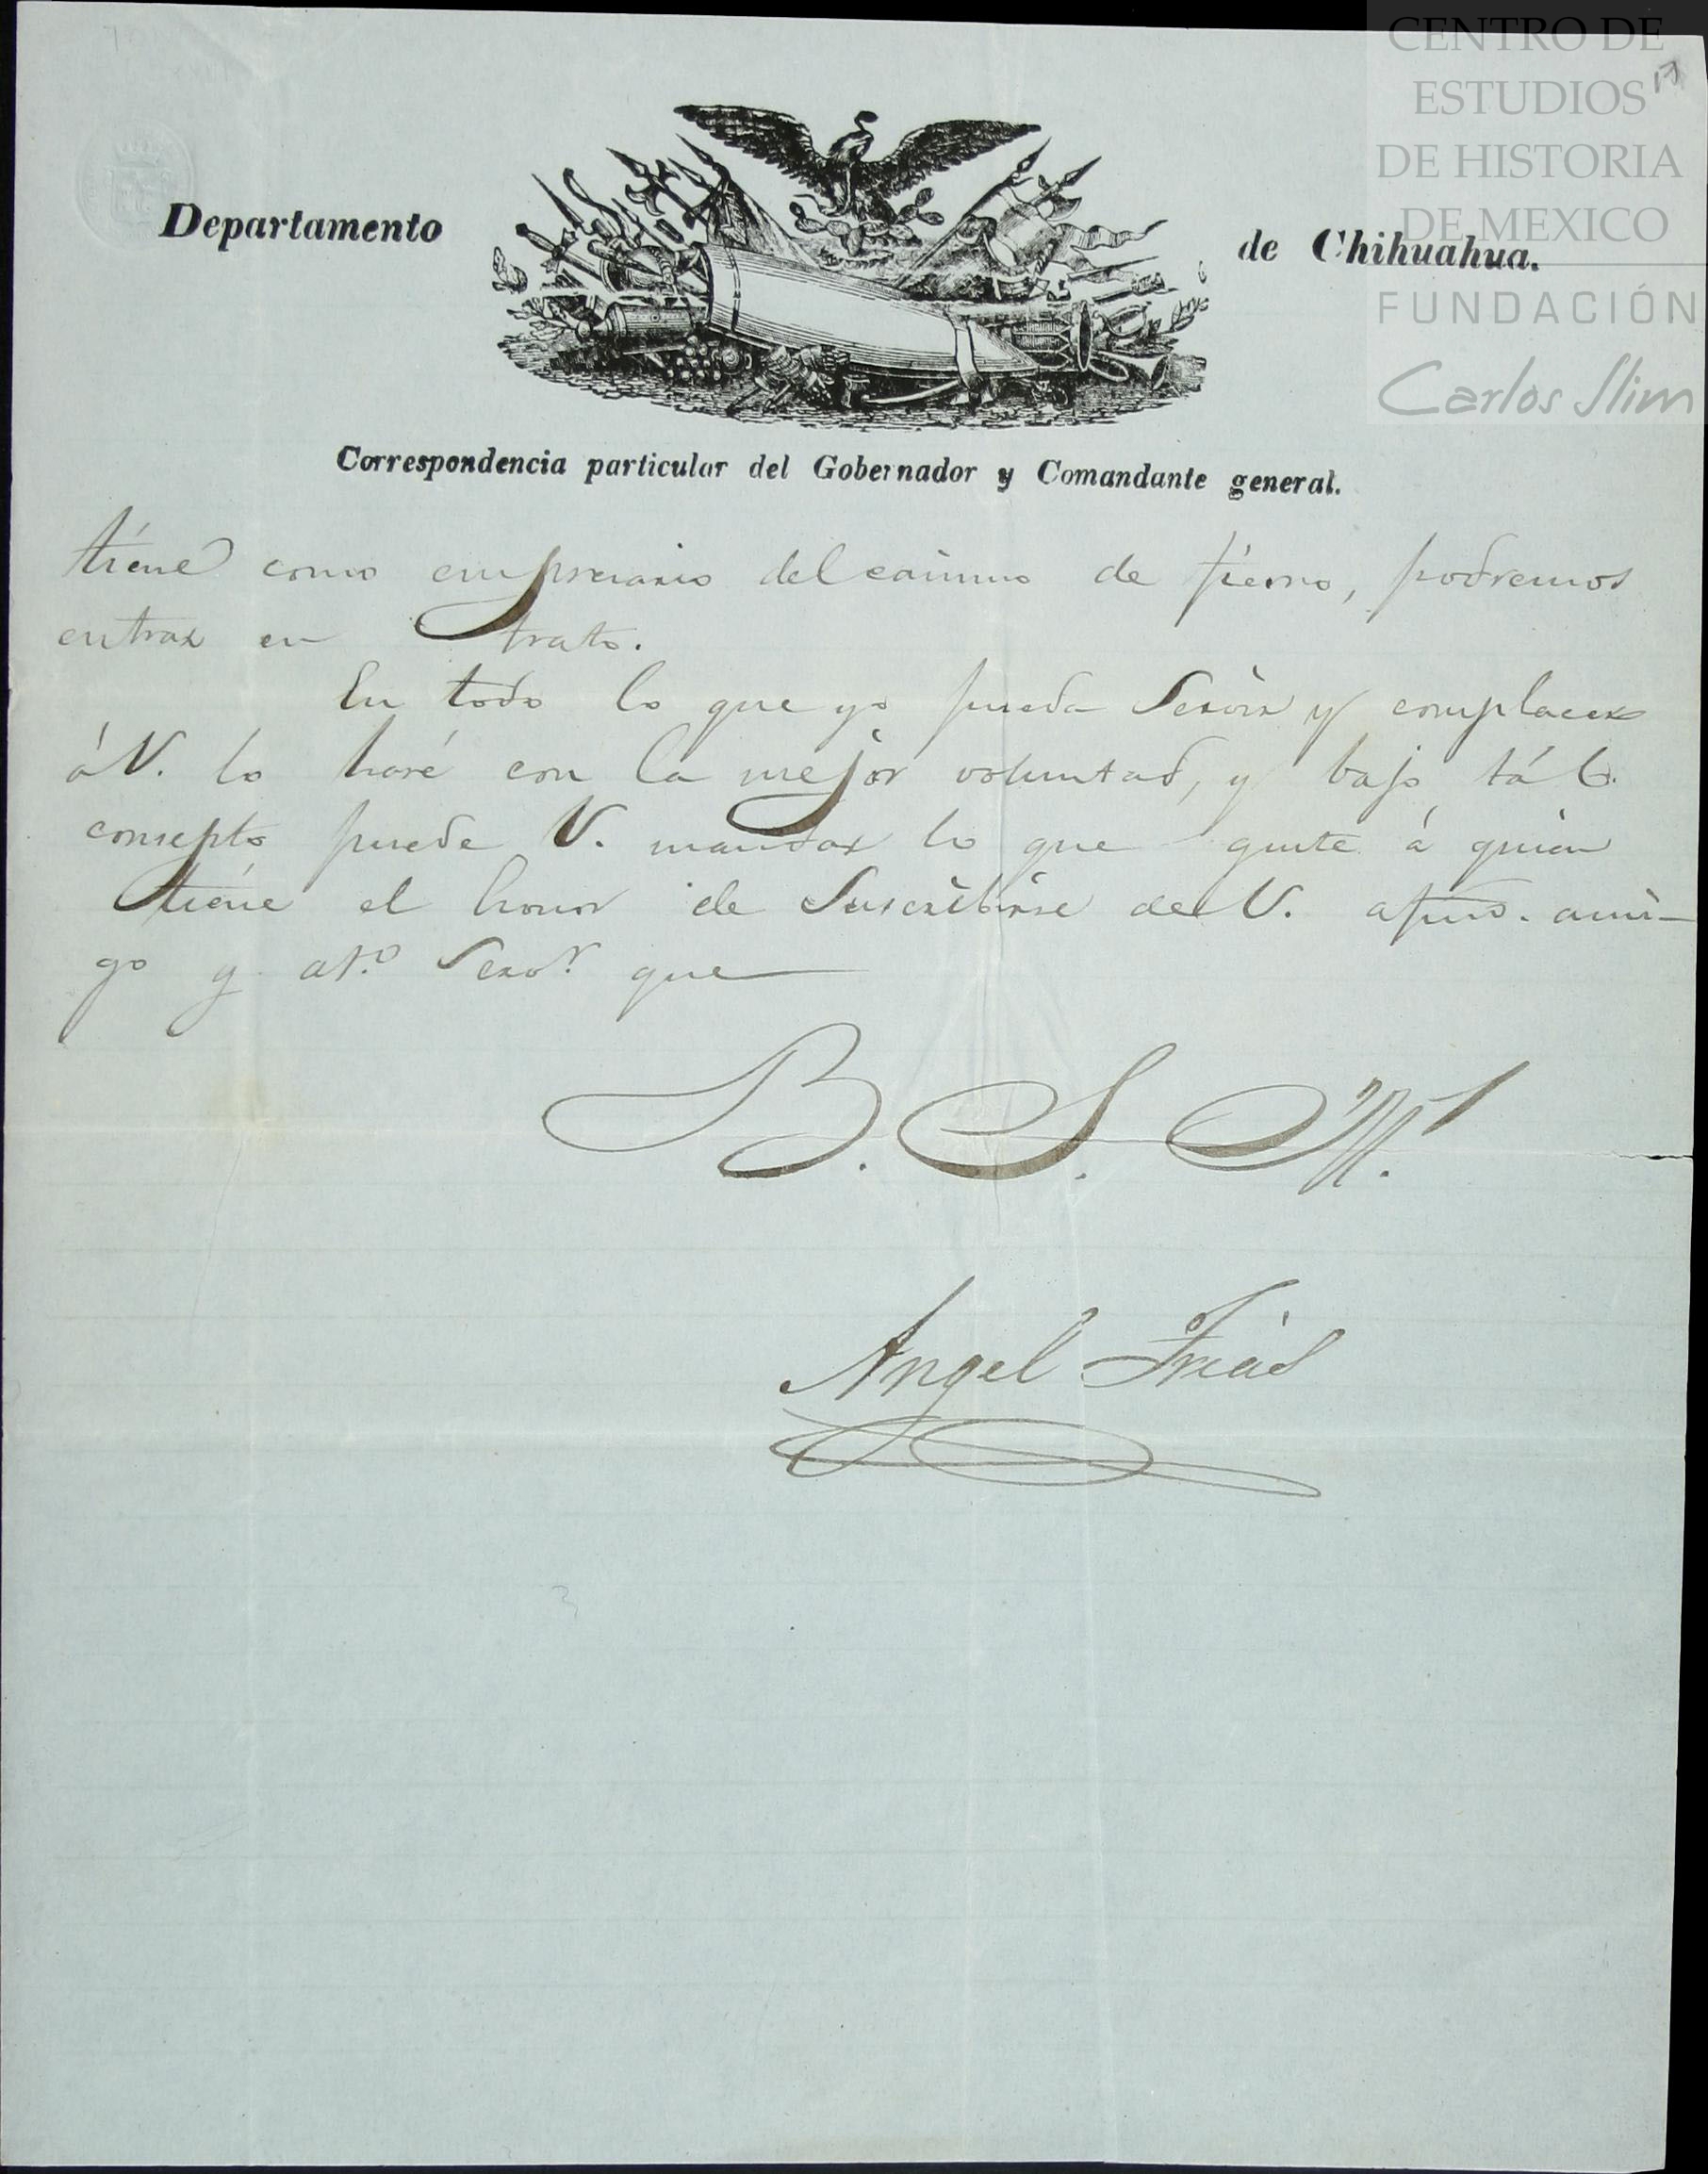 CENTRO DE
ESTUDIOS
DE HISTORIA
DE MEXICO
FUNDACIÓN
Carlos Slim
17
Departamento de Chihuahua.
Correspondencia particular del Gobernador y Comandante general.
tiene como empresario del camino de fierro, podremos
entrar en trato.
En todo lo que yo pueda Servir y complacer
á V. lo haré con la mejor voluntad, y bajo tál
consepto puede V. mandar lo que guste á quien
tiene el honor de Suscribirse de V. afmo. ami-
go y at.º Servr. que
B. S. M.
Angel Frias